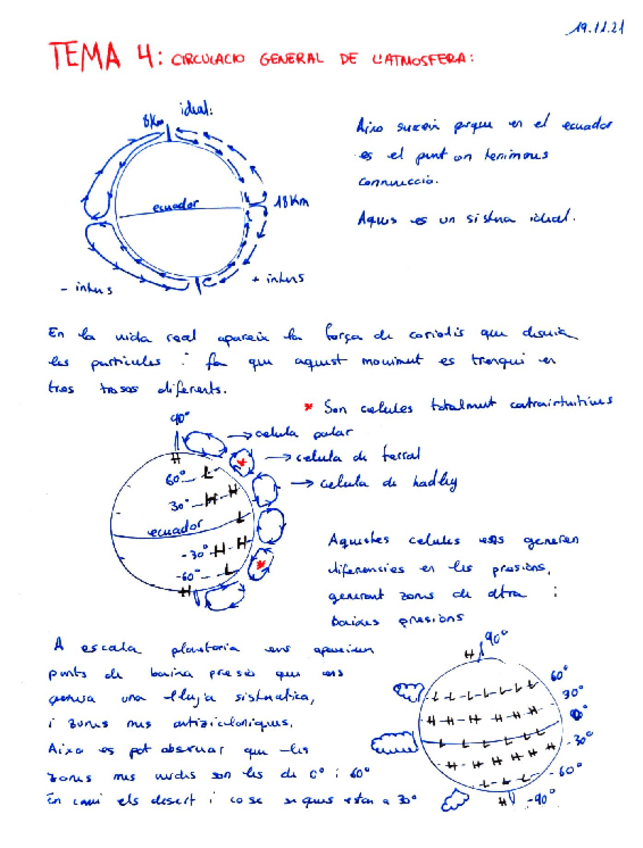 19.11.21
TEMA 4: CIRCULACIO GENERAL DE L'ATMOSFERA:
ideal:
8Km
ecuador
18Km
- intens
+ intens
Aixo succeix perque en el ecuador
es el punt on tenim mes
connveccio.
Aques es un sistema ideal.
En la vida real apareix la força de coriolis que desvia
les particules i fa que aquest moviment es trenqui en
tres trosos diferents.
* Son celules totalment contraintuitives
90°
celula polar
H
celula de ferral
60° - L
celula de hadley
30° - H - H
L
ecuador
- 30° - H - H
-60° - L
H
Aquestes celules ens generen
diferencies en les presions,
generant zones de altra i
baixes presions
A escala planetaria ens apareixen
punts de baixa presio que ens
genera una pluja sistematica,
i zones mes anticicloniques.
Aixo es pot observar que les
zones mes verdes son les de 0° i 60°
En canvi els desert i cose seques estan a 30°
H 90°
60°
L L L L L L
30°
H - H - H - H - H
0°
L L L L L L
- 30°
H - H H H H
- 60°
L - L L L
H -90°